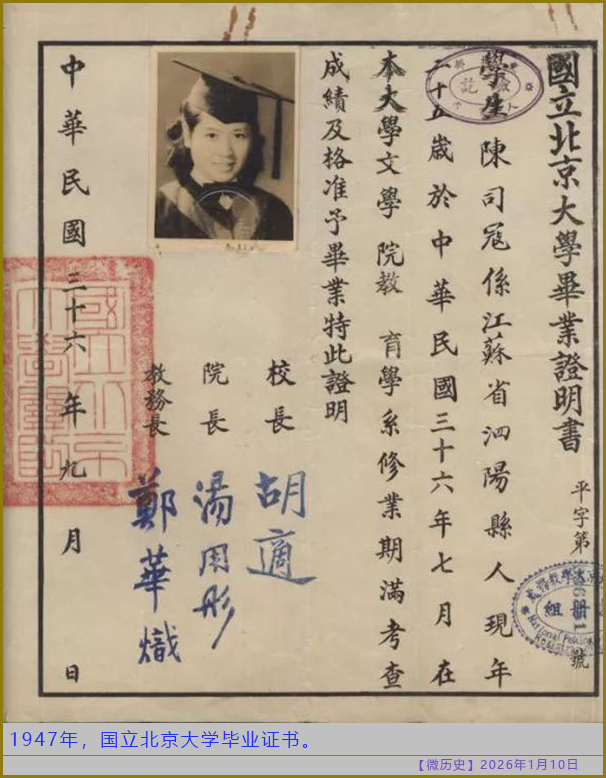 國立北京大學畢業證明書
平字第
號
學生陳司寇係江蘇省泗陽縣人現年
二十五歲於中華民國三十六年七月在
本大學文學院教育學系修業期滿考查
成績及格准予畢業特此證明
校長 胡適
院長 湯用彤
教務長 鄭華熾
中華民國三十六年九月 日
National Peking
1947年，国立北京大学毕业证书。
【微历史】2026年1月10日